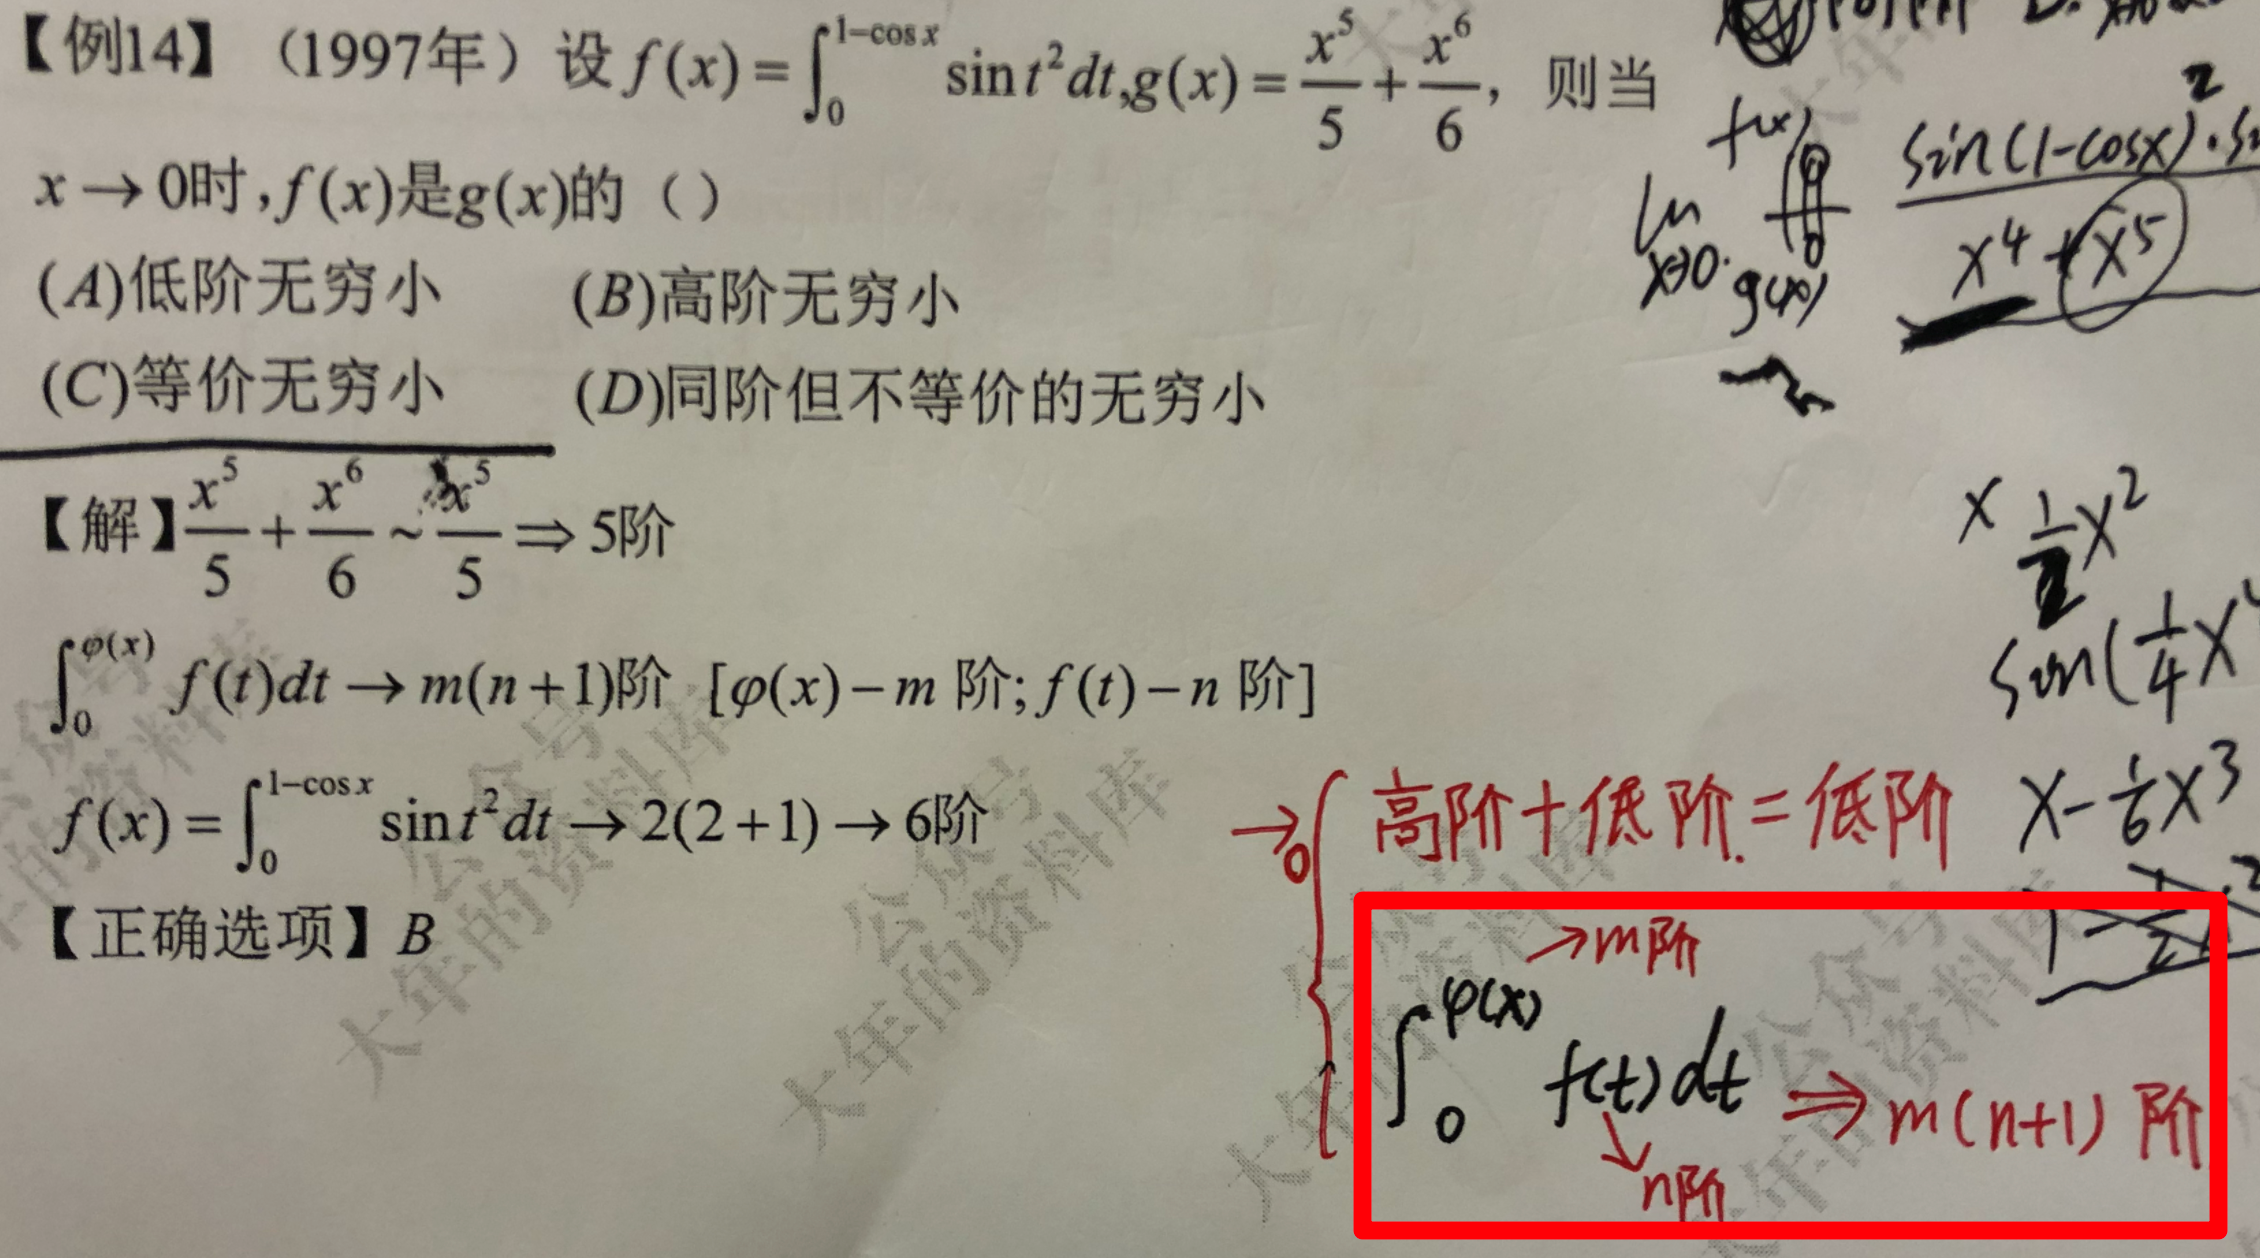 【例14】（1997年）设 f(x)=∫₀^{1-cos x} sin t² dt,g(x)=x⁵/5+x⁶/6，则当
x→0时,f(x)是g(x)的（ ）
(A)低阶无穷小 (B)高阶无穷小
(C)等价无穷小 (D)同阶但不等价的无穷小
【解】x⁵/5+x⁶/6~x⁵/5⇒5阶
∫₀^{φ(x)} f(t)dt→m(n+1)阶 [φ(x)−m 阶;f(t)−n 阶]
f(x)=∫₀^{1-cos x} sin t² dt→2(2+1)→6阶
【正确选项】B
lim x→0 f(x) g(x)
sin(1-cosx)²·
x⁴+x⁵
x ½x²
sin(¼x
x-⅙x³
→0 { 高阶+低阶=低阶
→m阶
∫₀^{φ(x)} f(t)dt ⇒ m(n+1)阶
n阶
公众号
大年的资料库
公众号
大年的资料库
公众号
大年的资料库
公众号
大年的资料库